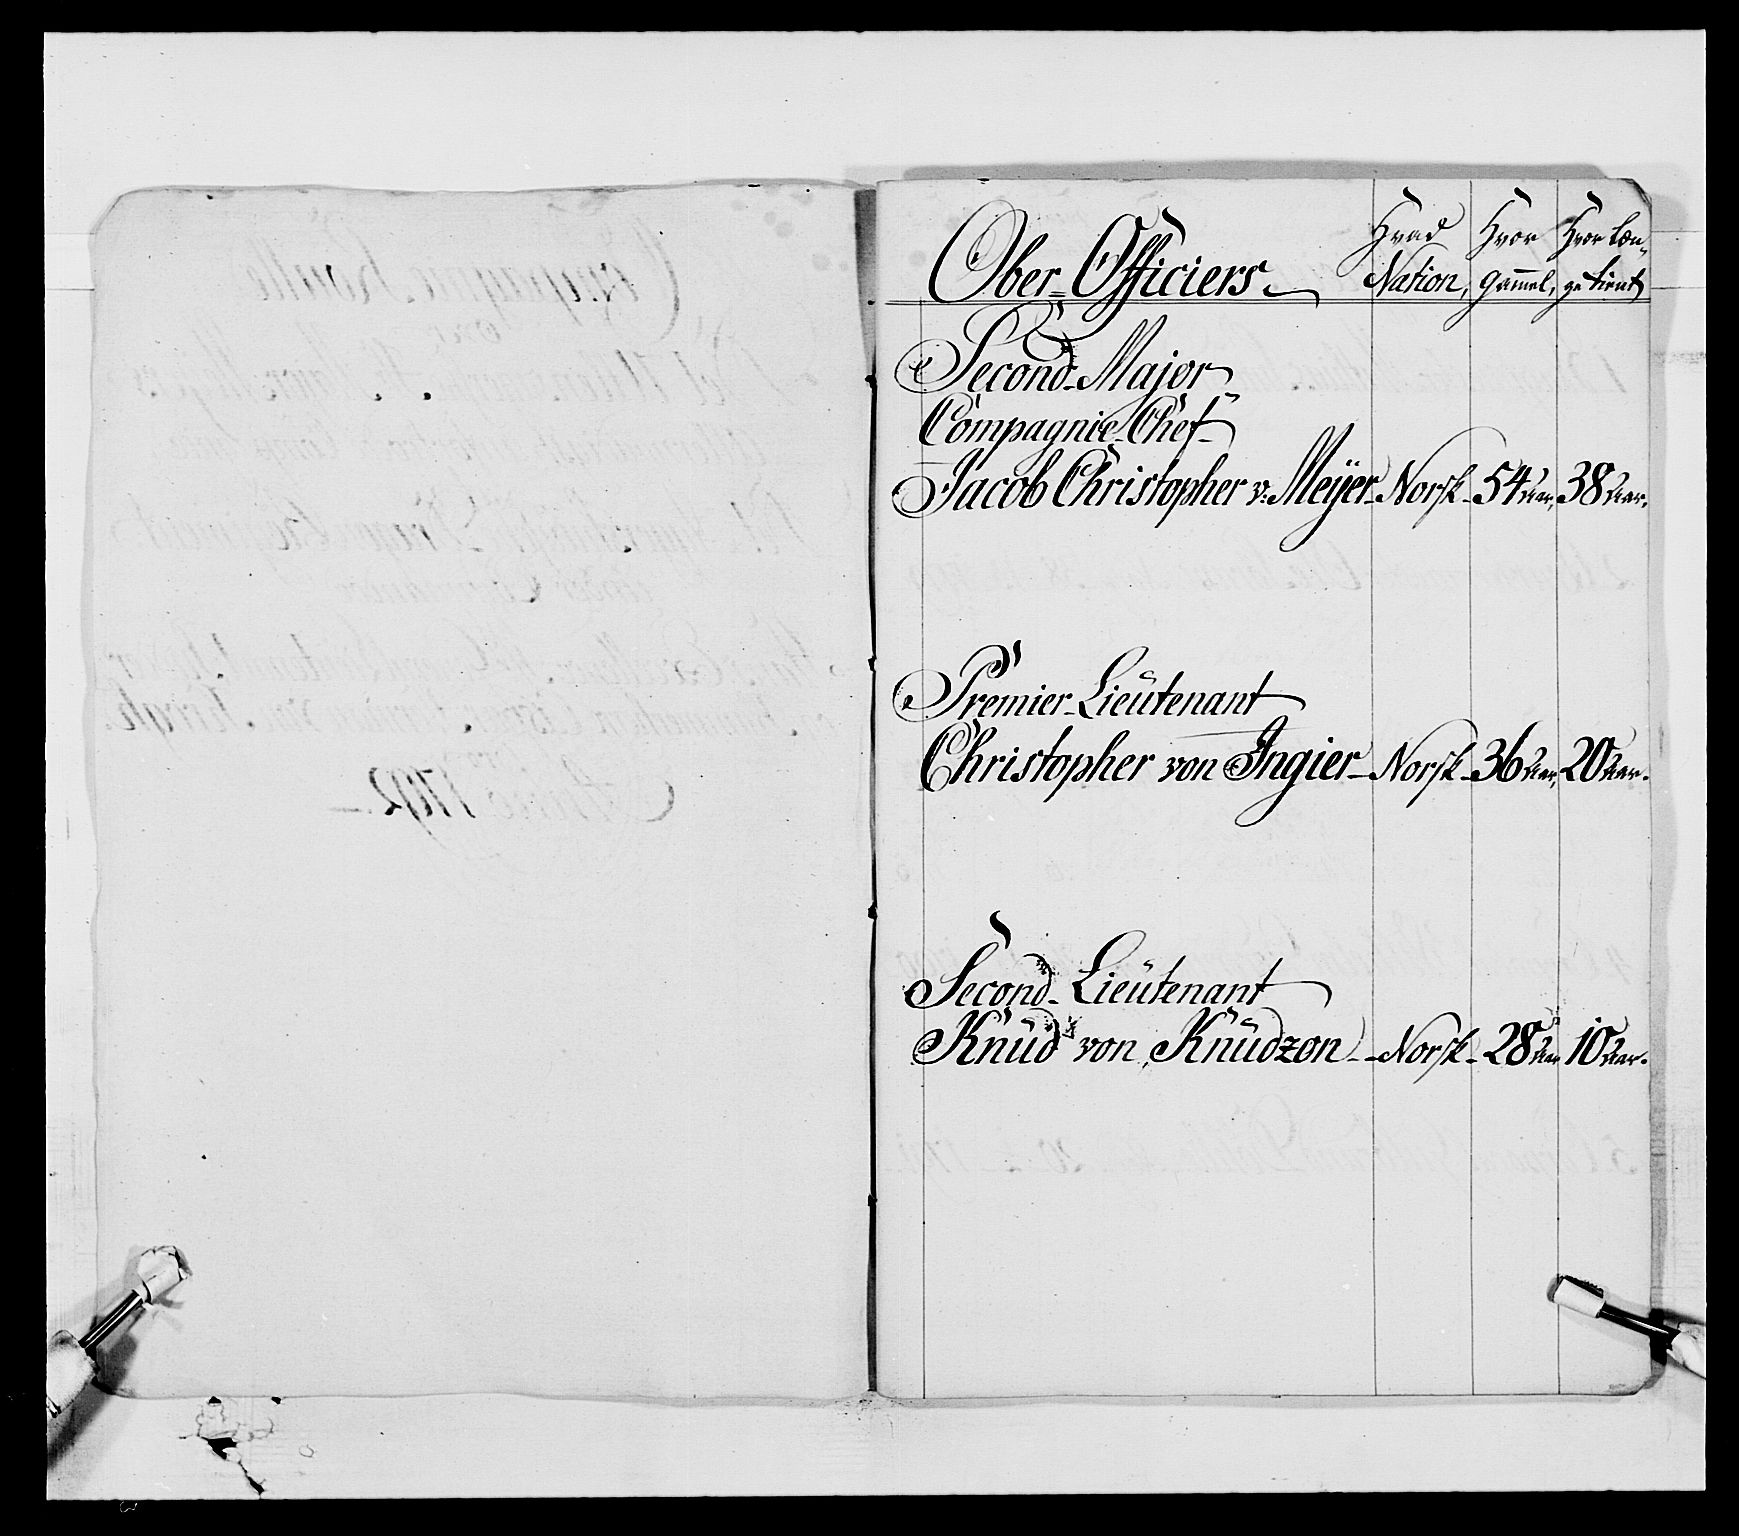 Ober-Officiers
Hvad Nation, Hvor gammel, Hvor læn- ge tient
Second-Major
Compagnie-Chef
Jacob Christopher v: Meÿer Norsk 54 Aar, 38 Aar.
Premier-Lieutenant
Christopher von Ingier Norsk 36 Aar, 20 Aar.
Second-Lieutenant
Knud von Knudzon Norsk 28 Aar 10 Aar.